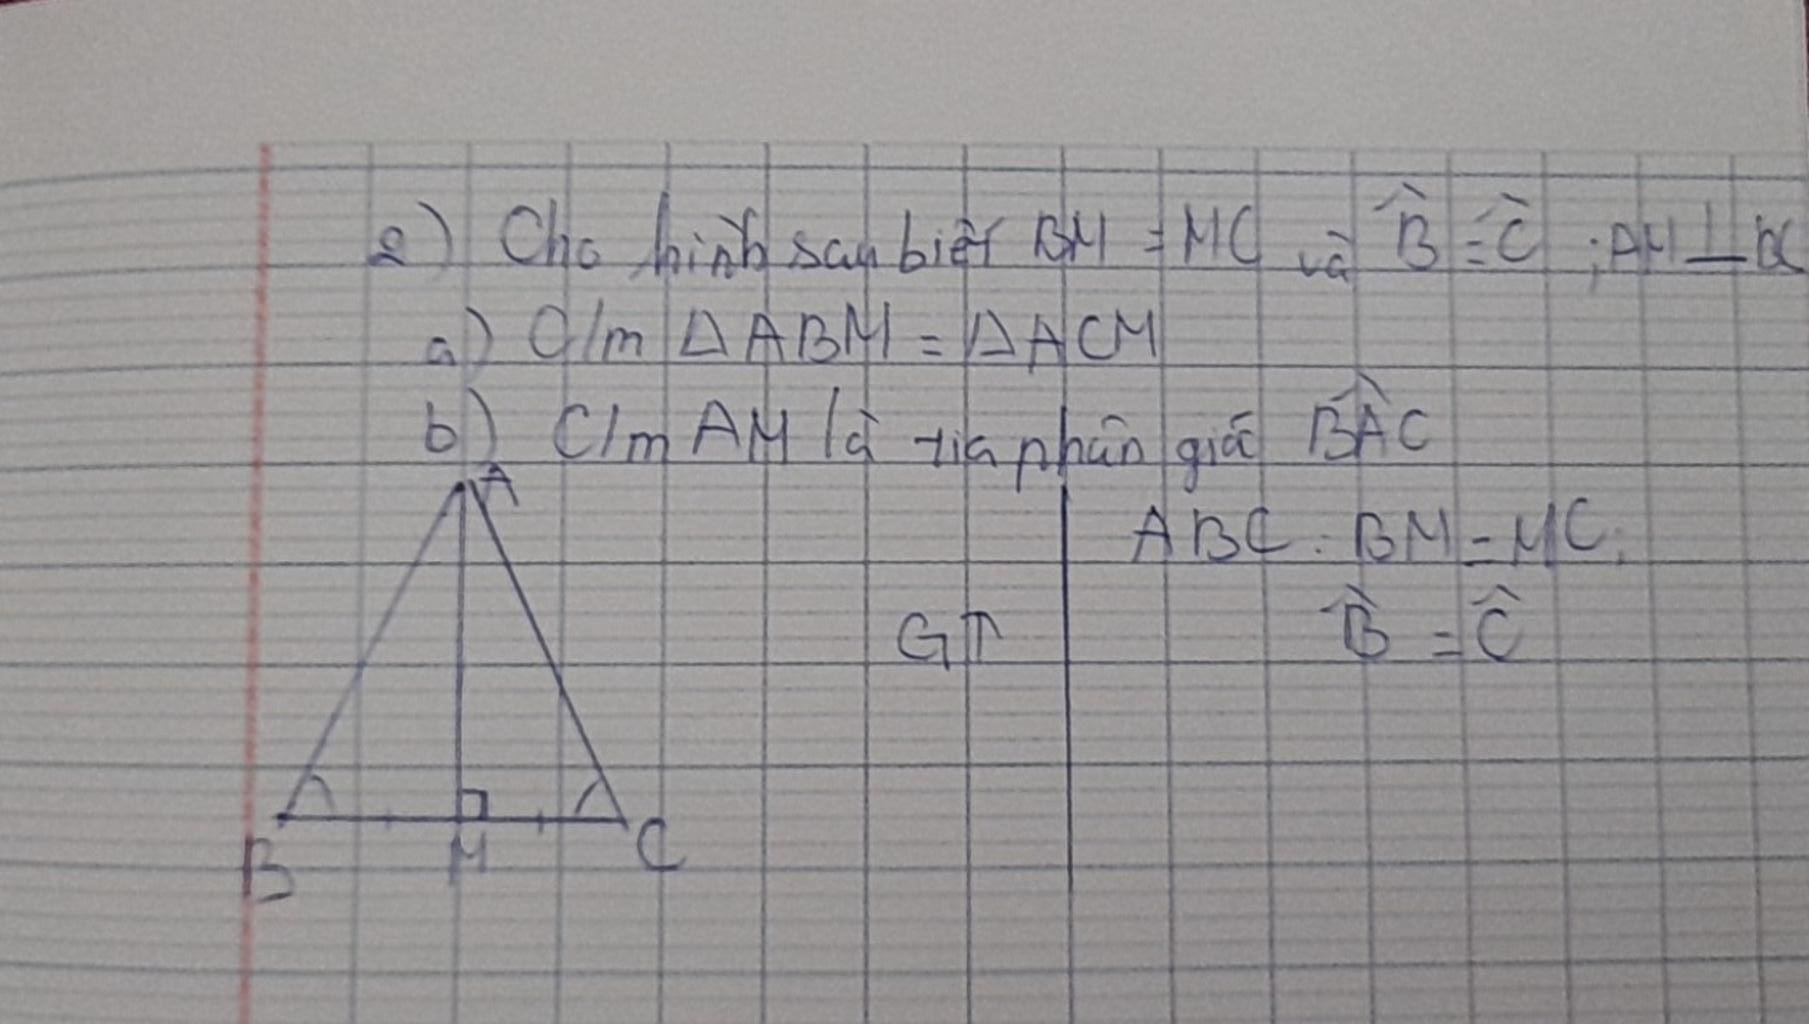 2) Cho hình sau biết BM = MC và B̂ = Ĉ ; AM ⊥ BC
a) C/m ΔABM = ΔACM
b) C/m AM là tia phân giác BÂC
A
ABC : BM = MC;
GT
B̂ = Ĉ
B M C